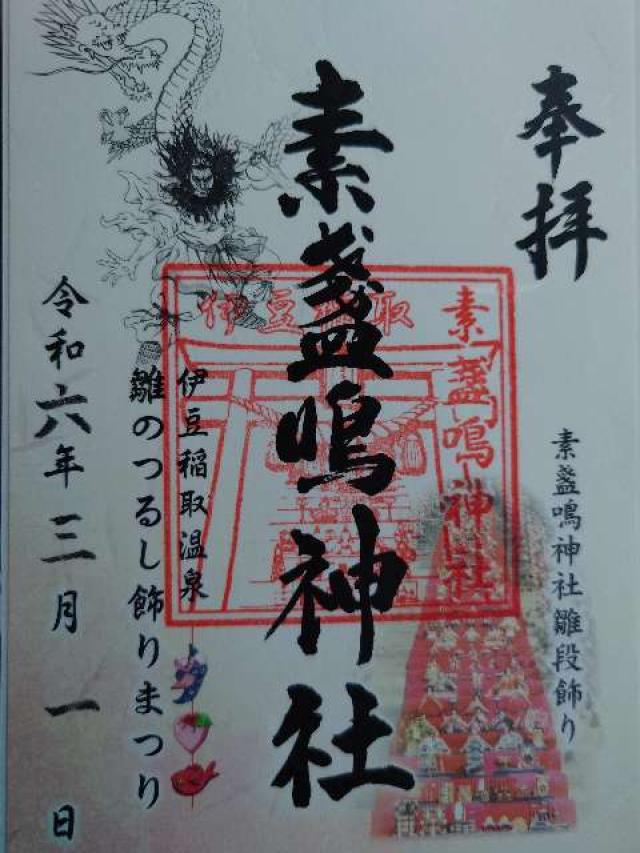 奉拝
素盞鳴神社雛段飾り
素盞鳴神社
伊豆稲取
素盞鳴神社
伊豆稲取温泉
雛のつるし飾りまつり
令和六年三月一日